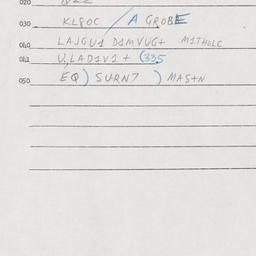 020
030 KL8OC / A GROBE
040 LAJGU1 D1MVUG+ M1THOLC
041 U,LAD1V1 + (335
050 EQ ) SURN7 ) MAS+N